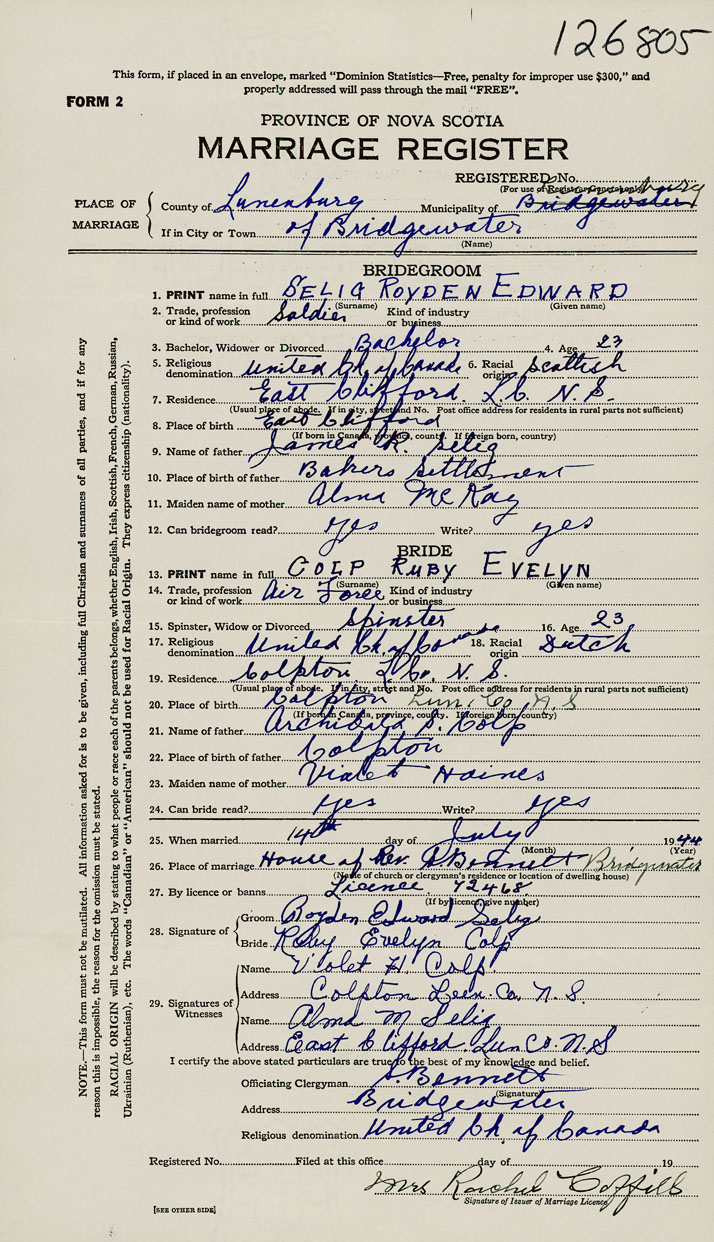 126805
This form, if placed in an envelope, marked "Dominion Statistics—Free, penalty for improper use $300," and
properly addressed will pass through the mail "FREE".
FORM 2
PROVINCE OF NOVA SCOTIA
MARRIAGE REGISTER
REGISTERED No.
(For use of Registrar General only)
PLACE OF MARRIAGE
County of Lunenburg Municipality of Bridgewater Lunenburg
If in City or Town of Bridgewater
(Name)
BRIDEGROOM
1. PRINT name in full SELIG ROYDEN EDWARD
(Surname) (Given name)
2. Trade, profession or kind of work Soldier Kind of industry or business
3. Bachelor, Widower or Divorced Bachelor 4. Age 23
5. Religious denomination United Ch. of Canada 6. Racial origin Scottish
7. Residence East Clifford. L.C. N.S.
(Usual place of abode. If in city, street and No. Post office address for residents in rural parts not sufficient)
8. Place of birth East Clifford
(If born in Canada, province, county. If foreign born, country)
9. Name of father James R. Selig
10. Place of birth of father Bakers Settlement
11. Maiden name of mother Alma McKay
12. Can bridegroom read? yes Write? yes
BRIDE
13. PRINT name in full COLP RUBY EVELYN
(Surname) (Given name)
14. Trade, profession or kind of work Air Force Kind of industry or business
15. Spinster, Widow or Divorced Spinster 16. Age 23
17. Religious denomination United Ch. of Canada 18. Racial origin Dutch
19. Residence Colpton L. Co. N.S.
(Usual place of abode. If in city, street and No. Post office address for residents in rural parts not sufficient)
20. Place of birth Colpton Lun. Co. N.S
(If born in Canada, province, county. If foreign born, country)
21. Name of father Archibald S. Colp
22. Place of birth of father Colpton
23. Maiden name of mother Violet Haines
24. Can bride read? yes Write? yes
25. When married 14th day of July 1944
(Month) (Year)
26. Place of marriage House of Rev. S Bennett Bridgewater
(Name of church or clergyman's residence or location of dwelling house)
27. By licence or banns Licence 72468
(If by licence, give number)
28. Signature of
Groom Royden Edward Selig
Bride Ruby Evelyn Colp
29. Signatures of Witnesses
Name Violet H. Colp.
Address Colpton Lun. Co. N.S.
Name Alma M Selig
Address East Clifford Lun Co. N.S
I certify the above stated particulars are true to the best of my knowledge and belief.
Officiating Clergyman S. Bennett
(Signature)
Address Bridgewater
Religious denomination United Ch. of Canada
Registered No. Filed at this office day of 19
Mrs Rachel Coffill
Signature of Issuer of Marriage Licence
[SEE OTHER SIDE]
NOTE.—This form must not be mutilated. All information asked for is to be given, including full Christian and surnames of all parties, and if for any
reason this is impossible, the reason for the omission must be stated.
RACIAL ORIGIN will be described by stating to what people or race each of the parents belongs, whether English, Irish, Scottish, French, German, Russian,
Ukrainian (Ruthenian), etc. The words "Canadian" or "American" should not be used for Racial Origin. They express citizenship (nationality).